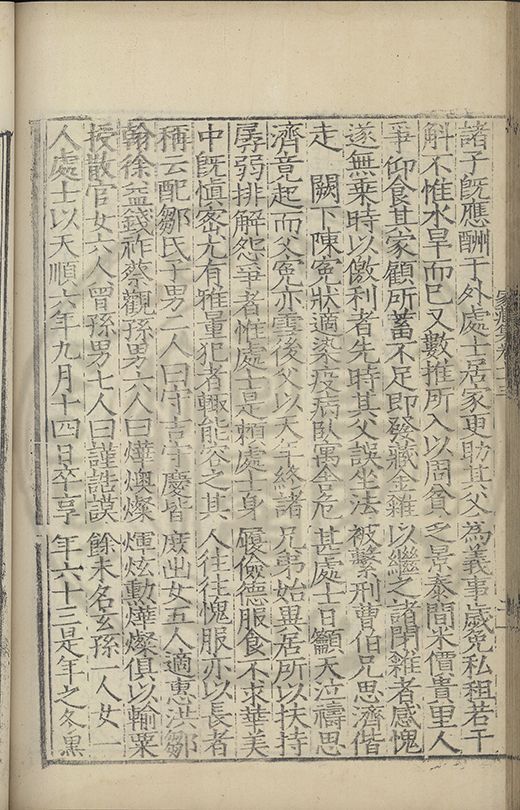 諸子既應酬于外處士居家更助其父為義事歲免私租若干
斛不惟水旱而已又數推所入以周貧乏景泰間米價貴里人
爭仰食其家顧所蓄不足即發藏金糴以繼之諸閉糴者感愧
遂無乘時以儌利者先時其父誤坐法被繫刑曹伯兄思濟偕
走 闕下陳寃狀適染疫病臥寓舍危甚處士日籲天泣禱思
濟竟起而父寃亦雪後父以天年終諸兄弟始異居所以扶持
孱弱排解怨爭者惟處士是賴處士身履儉德服食不求華美
中既慎密尤有雅量犯者輒能容之其人往往愧服亦以長者
稱云配鄒氏子男二人曰守吉守慶皆庶出女五人適惠洪鄒
翰徐益錢祚蔡觀孫男六人曰燁燠燦煇炫勳燁燦俱以輸粟
授散官女六人曾孫男七人曰謹誥謨餘未名玄孫一人女一
人處士以天順六年九月十四日卒享年六十三是年之冬黑